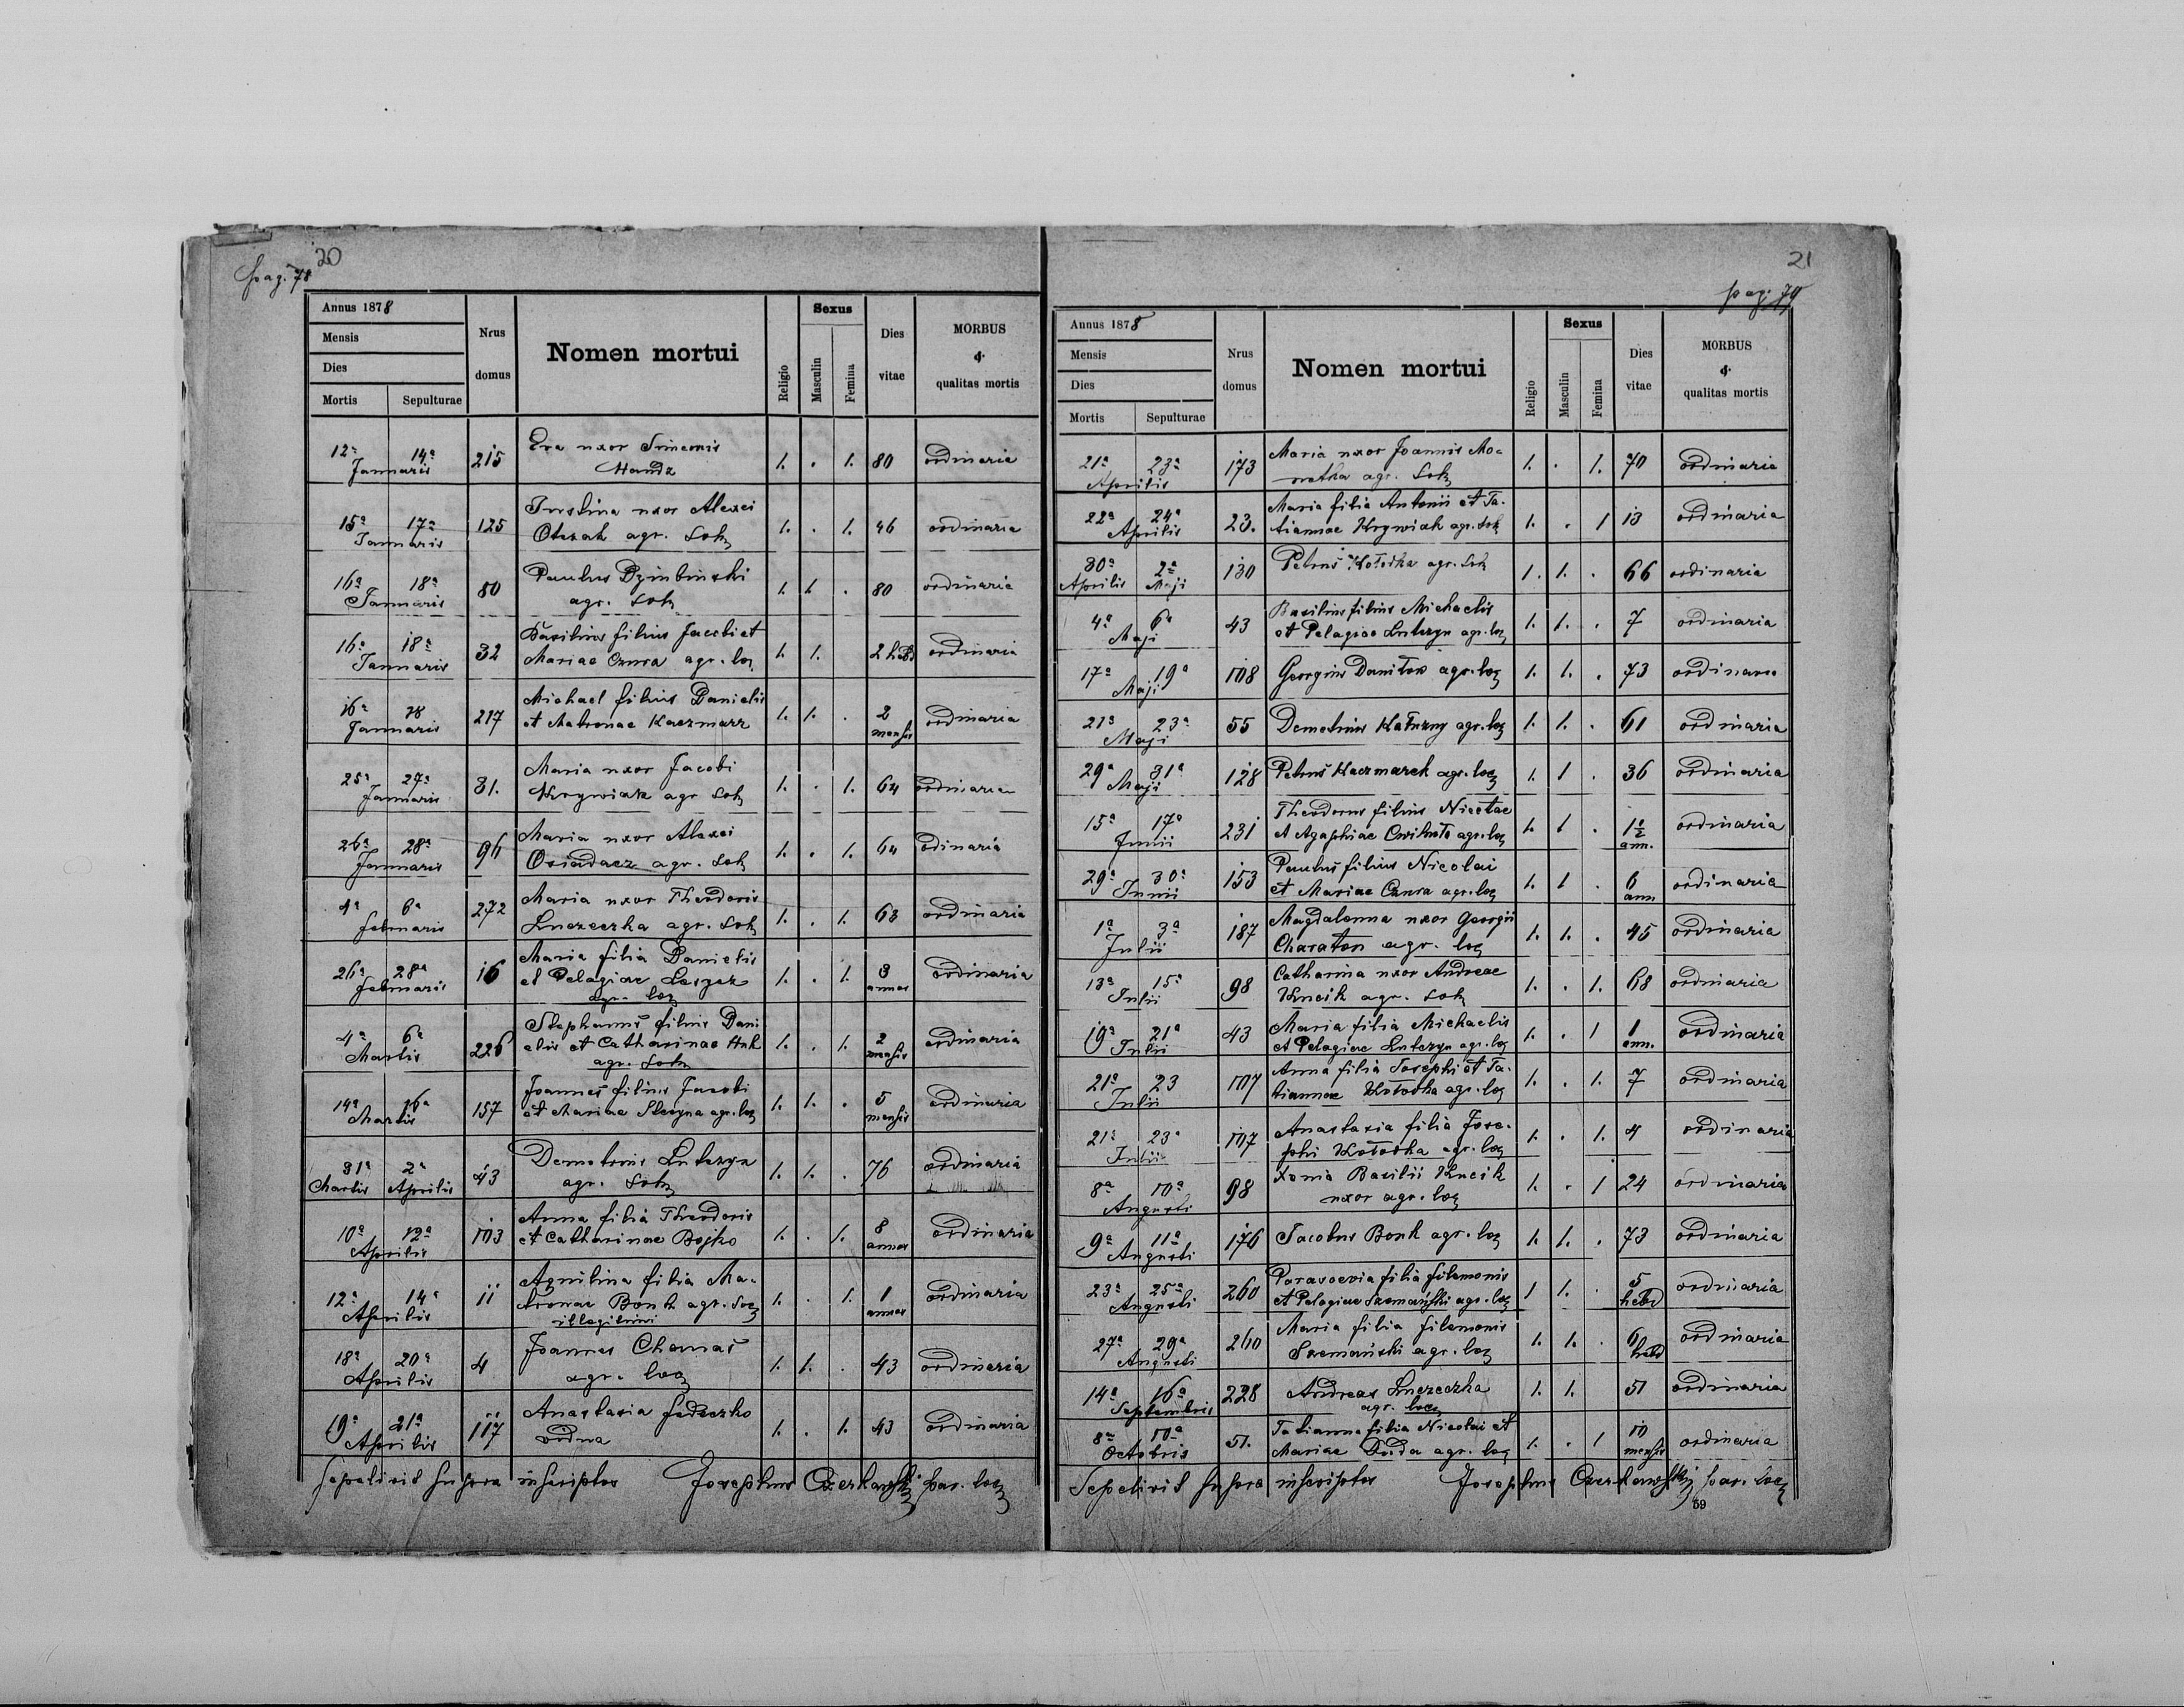 20
pag. 78
Annus 1878
Mensis
Dies
Mortis Sepulturae
Nrus domus
Nomen mortui
Religio
Sexus
Masculin
Femina
Dies vitae
MORBUS
&
qualitas mortis
12a 14a Januaris 215 Eva uxor Simeonis 1. . 1. 80 ordinaria
Handz
15a 17a Januaris 125 Justina uxor Alexei 1. . 1. 46 ordinaria
agr. Loh
16a 18a Januaris 80 Paulus Dzinbinski 1. 1 . 80 ordinaria
agr. Loh
16a 18a Januaris 32 Basilius filius Jacobi et 1. 1. 2 hebd ordinaria
Mariae Czura agr. loc
16a 18 Januaris 217 Michael filius Danielis 1. 1. . 2 mensis ordinaria
et Matronae Kaczmarz
25a 27a Januaris 31. Maria uxor Jacobi 1. . 1. 64 ordinaria
Krzywiak agr Loh
26a 28a Januaris 96 Maria uxor Alexei 1. . 1. 64 odinaria
Osiadacz agr. Loh
4a 6a Februaris 272 Maria uxor Theodoris 1. . 1. 63 ordinaria
Luczeczka agr. Loh
26a 28a Februaris 16 Maria filia Danielis 1. . 1. 3 annos ordinaria
et Pelagiae
agr. loc
4a 6a Martis 226 Stephanus filius Dani 1. . 1. 2 mensis ordinaria
elis et Catharinae Huk
agr. Loh
14a 16a Martis 157 Joannes filius Jacobi 1. 1. . 5 mensis ordinaria
et Mariae agr. loc
31a Martis 2a Aprilis 43 Demetrius Lutczyn 1. 1. . 76 ordinaria
agr. Loh
10a 12a Aprilis 103 Anna filia Theodoris 1. . 1. 8 annos ordinaria
et Catharinae Bojko
12a 14a Aprilis 11 Aquilina filia Ma- 1. . 1. 1 annos ordinaria
tronae Bonk agr. loc
illegitimi
18a 20a Aprilis 4 Joannes Chamas 1. 1. . 43 ordinaria
agr. loc
19a 21a Aprilis 117 Anastasia Fedeczko 1. . 1. 43 ordinaria
vidua
Sepelivit supra inscriptos Josephus Czerkawskij par. loc
21
pag. 79
Annus 1878
Mensis
Dies
Mortis Sepulturae
Nrus domus
Nomen mortui
Religio
Sexus
Masculin
Femina
Dies vitae
MORBUS
&
qualitas mortis
21a 23a Aprilis 173 Maria uxor Joannis Mo- 1. . 1. 70 ordinaria
agr. Loh
22a 24a Aprilis 23. Maria filia Antonii et Ta- 1. . 1 13 ordinaria
tiannae Krzywiak agr. Loh
30a Aprilis 2a Maji 130 Petrus Kolodka agr. Loh 1. 1. . 66 ordinaria
4a 6a Maji 43 Basilius filius Michaelis 1. 1. . 7 ordinaria
et Pelagiae Lutczyn agr. loc
17a 19a Maji 108 Georgius Danilow agr. loc 1. 1. . 73 ordinaria
21a 23a Maji 55 Demetrius Kałużny agr. loc 1. 1. . 61 ordinaria
29a 31a Maji 128 Petrus Kaczmarek agr. loc 1. 1 . 36 ordinaria
15a 17a Junii 231 Theodorus filius Nicetae 1. 1 . 1½ ann. ordinaria
et Agaphiae agr. loc
29a 30a Junii 153 Paulus filius Nicolai 1. 1 . 6 ann ordinaria
et Mariae Czura agr. loc
1a 3a Julii 187 Magdalenna uxor Georgii 1. 1. . 45 ordinaria
Charaton agr. loc
13a 15a Julii 98 Catharina uxor Andreae 1. . 1. 68 ordinaria
Kucik agr. Loh
19a 21a Julii 43 Maria filia Michaelis 1. . 1 1 ann. ordinaria
et Pelagiae Lutczyn agr. loc
21a 23 Julii 107 Anna filia Josephi et Ta- 1. . 1. 7 ordinaria
tiannae Kolodka agr. loc
21a 23a Julii 107 Anastasia filia Jose- 1. . 1. 4 ordinaria
phi Kolodka agr. loc
8a 10a Augusti 98 Xenia Basilii Kucik 1. . 1 24 ordinaria
uxor agr. loc
9a 11a Augusti 176 Jacobus Bonk agr. loc 1. 1. . 73 ordinaria
23a 25a Augusti 260 Parascevia filia filemonis 1 1. . 5 hebd ordinaria
et Pelagiae Szemański agr. loc
27a 29a Augusti 260 Maria filia filemonis 1. 1. . 6 hebd ordinaria
Szemański agr. loc
14a 16a Septembris 228 Andreas Luczeczka 1. 1. 51 ordinaria
agr. loc
8a 10a Octobris 51. Tatianna filia Nicolai et 1. . 1 10 mensis ordinaria
Mariae Duda agr. loc
Sepelivit supra inscriptos Josephus Czerkawskij par. loc
59